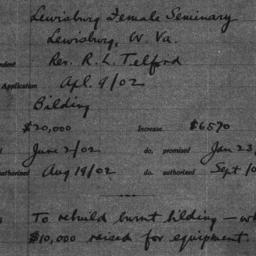 Lewisburg Female Seminary
Lewisburg, W. Va.
Rev. R. L. Telford
Application Apl. 9/02
Bilding
$20,000 Increase $6570
June 2/02 do. promised Jan 23,
Aug 19/02 do. authorized Sept 10
To rebuild burnt bilding —
$10,000 reised for equipment.